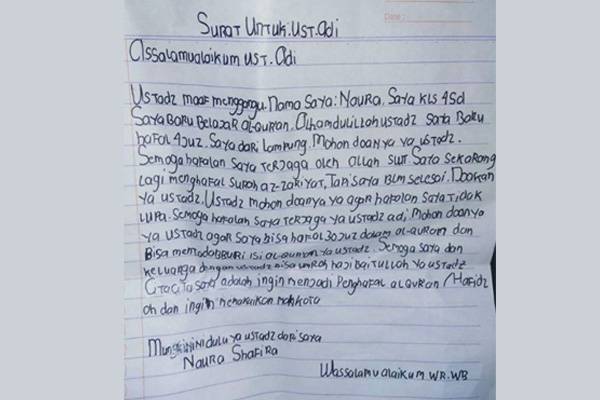 Date:
SURAT UNTUK:UST.Adi
Assalamualaikum UST.Adi
Ustadz maaf menggangu. Nama saya: Naura, saya kls 4sd
Saya baru belajar al-quran. Alhamdulillah ustadz saya baru
hafal 4 juz. saya dari lampung. Mohon doanya ya ustadz.
Semoga hafalan saya terjaga oleh Allah swt. saya sekarang
lagi menghafal suroh az-zariyat, Tapi saya blm selesai. Doakan
ya ustadz. Ustadz mohon doanya ya agar hafalan saya tidak
lupa. Semoga hafalan saya terjaga ya ustadz adi. Mohon doanya
ya ustadz agar saya bisa hafal 30 juz dalam al-quran dan
Bisa mentadabburi isi al-quran ya ustadz. Semoga saya dan
keluarga dengan ustadz bisa umroh haji baitullah ya ustadz
Citacita saya adalah ingin menjadi Penghafal alquran /Hafidz
oh dan ingin memakaikan mahkota
Mungkin ini dulu ya ustadz dari saya
Naura Shafira
Wassalamualaikum.WR.WB